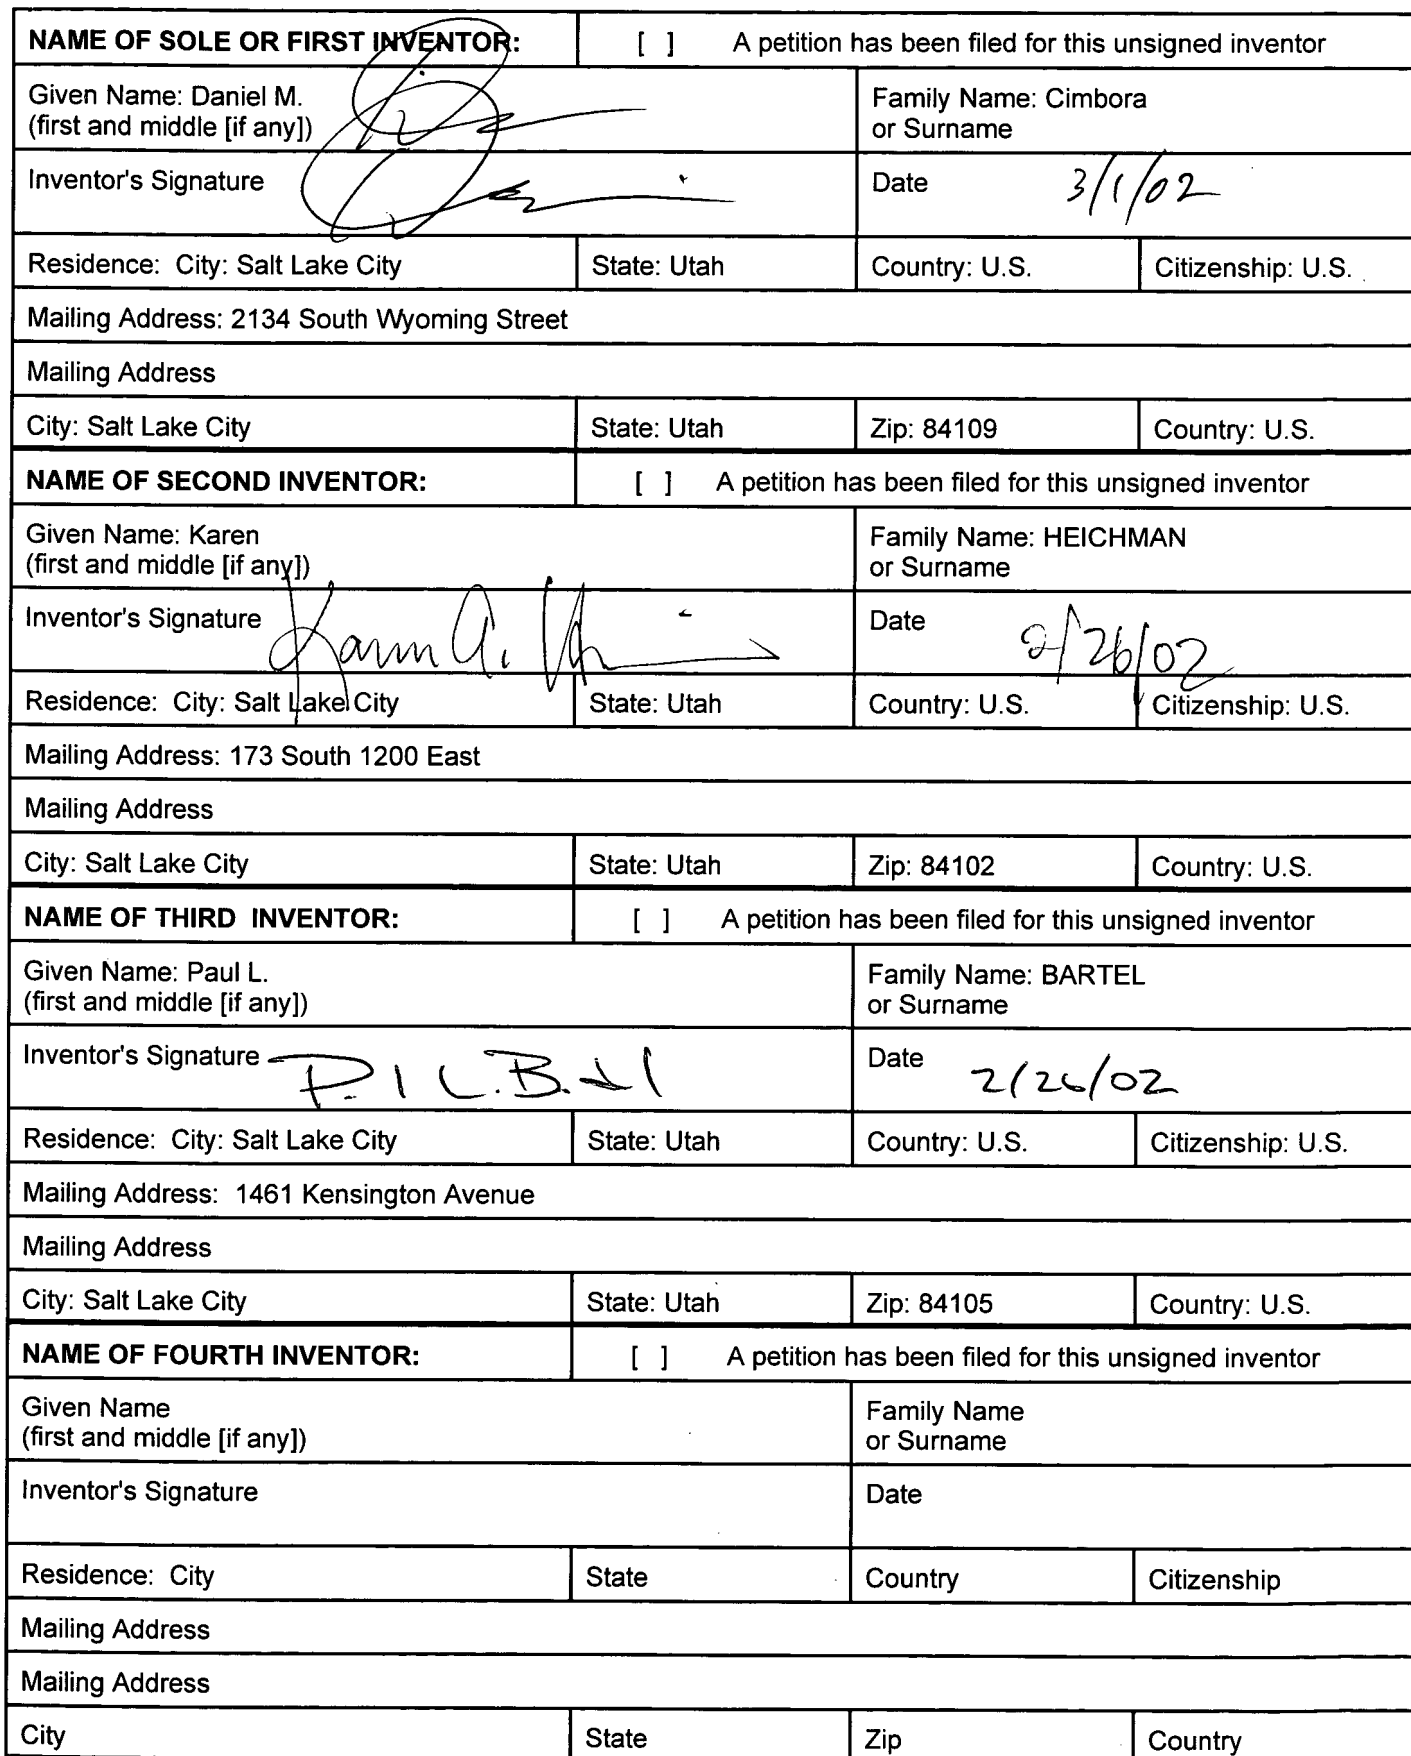 NAME OF SOLE OR FIRST INVENTOR: [ ] A petition has been filed for this unsigned inventor
Given Name: Daniel M. Family Name: Cimbora
(first and middle [if any]) or Surname
Inventor's Signature Date 3/1/02
Residence: City: Salt Lake City State: Utah Country: U.S. Citizenship: U.S.
Mailing Address: 2134 South Wyoming Street
Mailing Address
City: Salt Lake City State: Utah Zip: 84109 Country: U.S.
NAME OF SECOND INVENTOR: [ ] A petition has been filed for this unsigned inventor
Given Name: Karen Family Name: HEICHMAN
(first and middle [if any]) or Surname
Inventor's Signature Karen A. Date 2/26/02
Residence: City: Salt Lake City State: Utah Country: U.S. Citizenship: U.S.
Mailing Address: 173 South 1200 East
Mailing Address
City: Salt Lake City State: Utah Zip: 84102 Country: U.S.
NAME OF THIRD INVENTOR: [ ] A petition has been filed for this unsigned inventor
Given Name: Paul L. Family Name: BARTEL
(first and middle [if any]) or Surname
Inventor's Signature Date 2/26/02
Residence: City: Salt Lake City State: Utah Country: U.S. Citizenship: U.S.
Mailing Address: 1461 Kensington Avenue
Mailing Address
City: Salt Lake City State: Utah Zip: 84105 Country: U.S.
NAME OF FOURTH INVENTOR: [ ] A petition has been filed for this unsigned inventor
Given Name Family Name
(first and middle [if any]) or Surname
Inventor's Signature Date
Residence: City State Country Citizenship
Mailing Address
Mailing Address
City State Zip Country